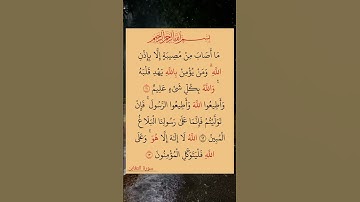 بسم الله الرحمن الرحيم
مَا أَصَابَ مِنْ مُصِيبَةٍ إِلَّا بِإِذْنِ
اللَّهِ ۗ وَمَنْ يُؤْمِنْ بِاللَّهِ يَهْدِ قَلْبَهُ
ۚ وَاللَّهُ بِكُلِّ شَيْءٍ عَلِيمٌ ۝١١
وَأَطِيعُوا اللَّهَ وَأَطِيعُوا الرَّسُولَ ۚ فَإِنْ
تَوَلَّيْتُمْ فَإِنَّمَا عَلَىٰ رَسُولِنَا الْبَلَاغُ
الْمُبِينُ ۝١٢ اللَّهُ لَا إِلَٰهَ إِلَّا هُوَ ۚ وَعَلَى
اللَّهِ فَلْيَتَوَكَّلِ الْمُؤْمِنُونَ ۝١٣
سورة التغابن